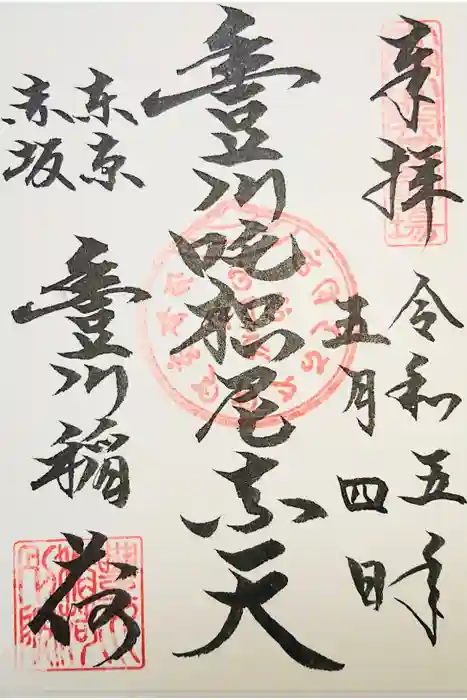 奉拝
令和五年
五月四日
豊川吒枳尼真天
東京
赤坂
豊川稲荷